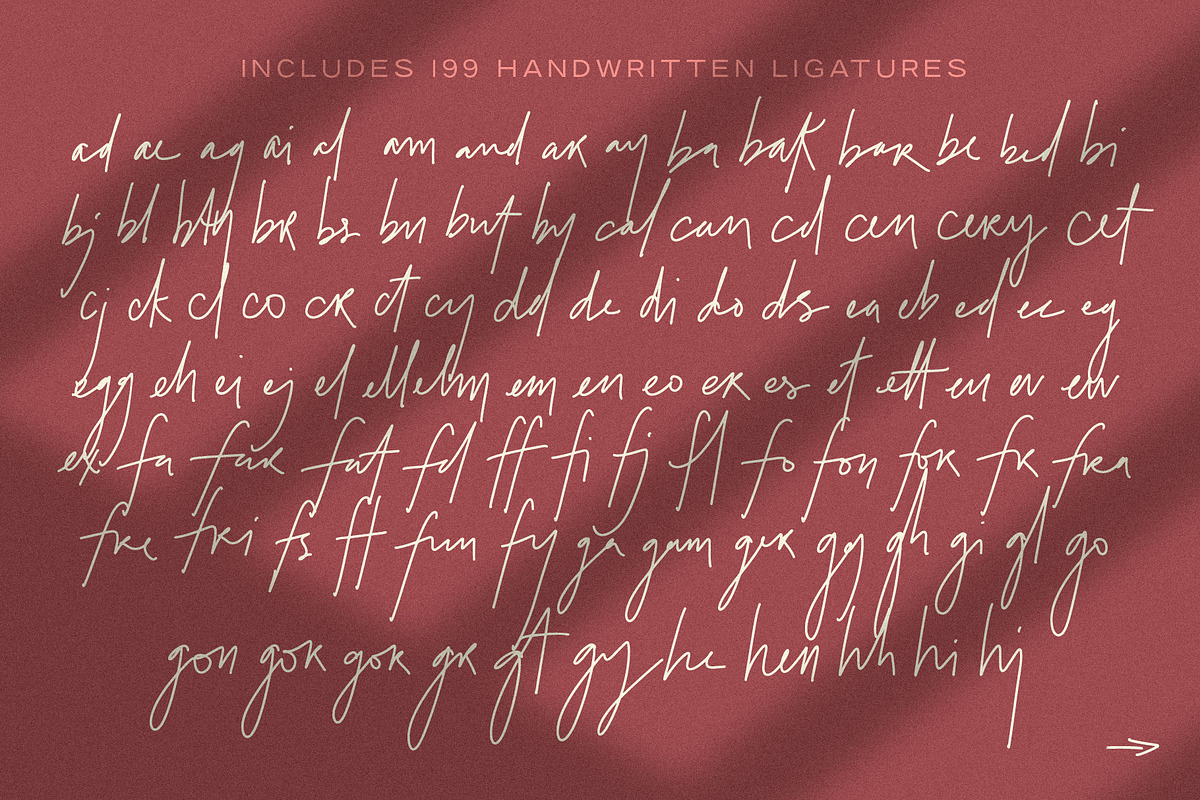 INCLUDES 199 HANDWRITTEN LIGATURES
ad ae ag ai al am and ar ay ba bak bar be bed bi
bj bl br bs bu but by cal can cd cen cery cet
cj ck cl co cr ct cy dd de di do ds ea eb ed ee eg
egg eh ei ej el ell elm em en eo er es et ett eu ev ew
ex fa far fat fd ff fi fj fl fo fon for fr fra
fre fri fs ft fun fy ga gam ger gg gh gi gl go
gon gor gr gt gy he hen hh hi hj